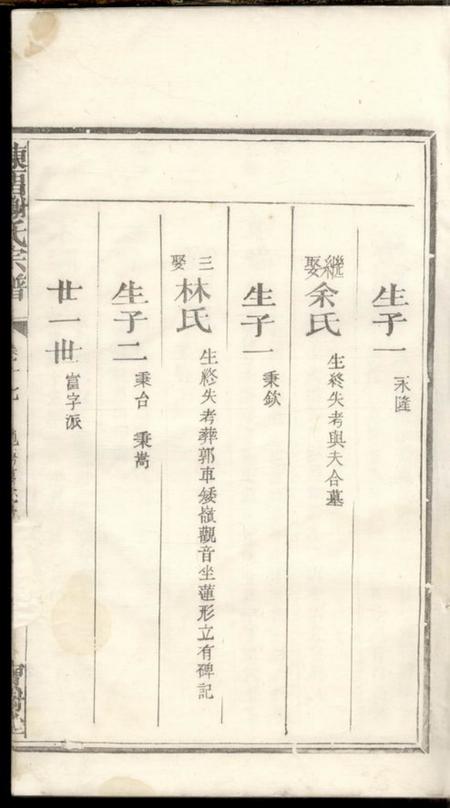 生子一 永隆
繼娶 余氏 生終失考與夫合墓
生子一 秉欽
三娶 林氏 生終失考葬郭車矮嶺觀音坐蓮形立有碑記
生子二 秉台 秉嵩
廿一世 富字派
謝氏宗譜